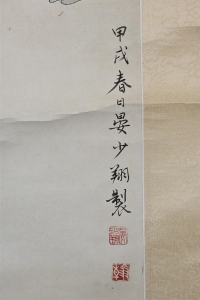 甲戌春日晏少翔製